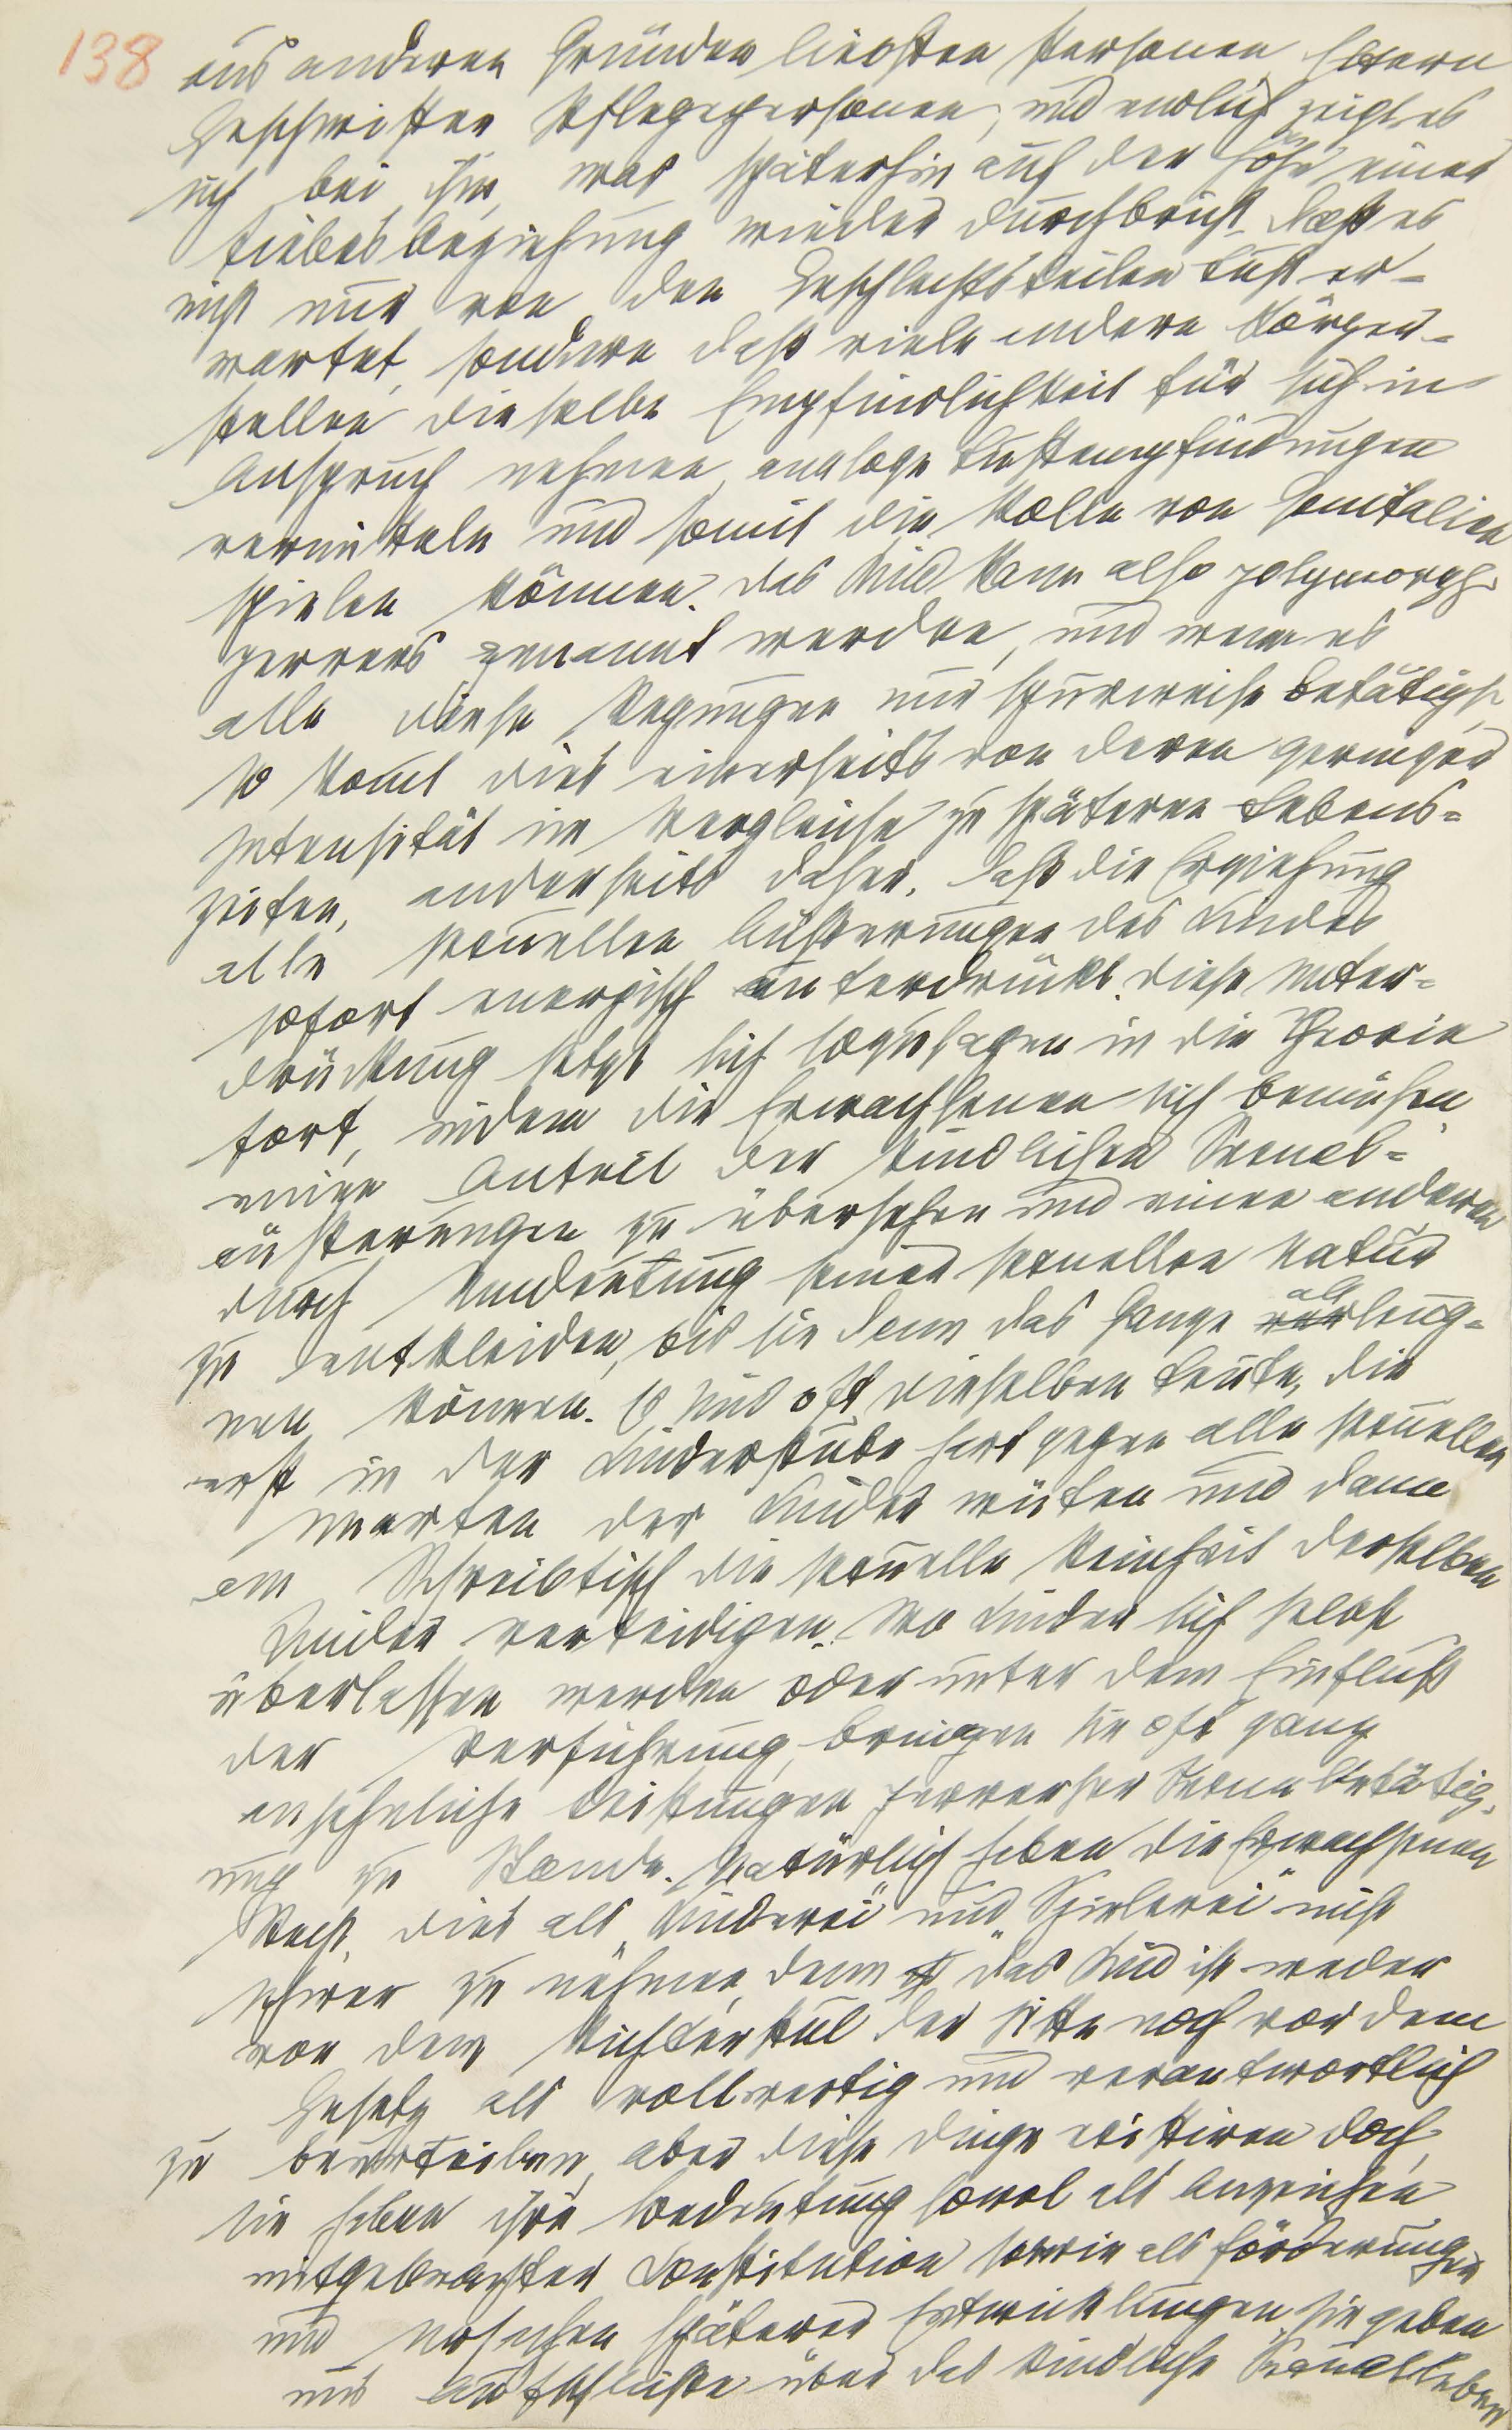 138
aus anderen Gründen liebsten Personen, Eltern
Geschwister Pflegepersonen, und endlich zeigt es
sich bei ihm, was späterhin auf der Höhe einer
Liebesbeziehung wieder durchbricht, dass es
nicht nur von den Geschlechtsteilen Lust er-
wartet, sondern dass viele andere Körper-
stellen dieselbe Empfindlichkeit für sich in
Anspruch nehmen, analoge Lustempfindungen
vermitteln und somit die Rolle von Genitalien
spielen können. Das Kind kann also polymorph
pervers genannt werden, und wenn es
alle diese Regungen nur spurweise betätigt,
so komt dies einerseits von deren geringer
Intensität im Vergleiche zu späteren Lebens-
zeiten, anderseits daher, dass die Erziehung
alle sexuellen Äusserungen des Kindes
sofort energisch unterdrückt. Diese Unter-
drückung setzt sich sozusagen in die Theorie
fort, indem die Erwachsenen sich bemühen
einen Anteil der kindlichen Sexual-
äusserungen zu übersehen und einen anderen
durch Umdeutung seiner sexuellen Natur
zu entkleiden, bis sie dann das Ganze ableug-
nen können. Es sind oft dieselben Leute, die
erst in der Kinderstube hart gegen alle sexuellen
Unarten der Kinder wüten und dann
am Schreibtisch die sexuelle Reinheit derselben
Kinder verteidigen. Wo Kinder sich selbst
überlassen werden oder unter dem Einfluss
der Verführung, bringen sie oft ganz
ansehnliche Leistungen perverser Sexualbetätig-
ung zu Stande. Natürlich haben die Erwachsenen
Recht, dies als „Kinderei" und „Spielerei" nicht
schwer zu nehmen, denn das Kind ist weder
vor dem Richterstul der Sitte noch vor dem
Gesetz als vollwertig und verantwortlich
zu beurteilen, aber diese Dinge existiren doch,
sie haben ihre Bedeutung sowol als Anzeichen
mitgebrachter Constitution sowie als Förderungen
und Ursachen späterer Entwicklungen, sie geben
uns Aufschlüsse über das kindliche Sexualleben